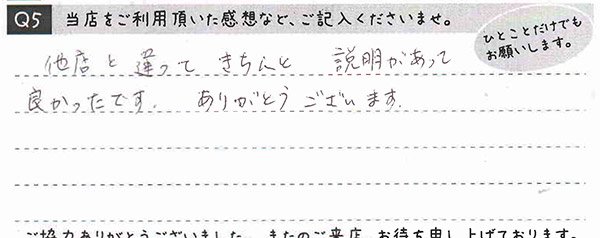 Q5 当店をご利用頂いた感想など、ご記入くださいませ。
ひとことだけでも
お願いします。
他店と違って きちんと 説明があって
良かったです. ありがとうございます.
ご協力ありがとうございました。またのご来店、お待ち申し上げております。